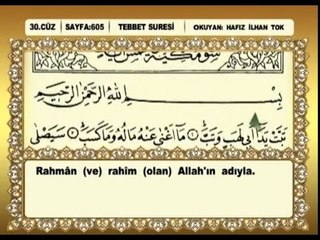 30.CÜZ SAYFA:605 TEBBET SURESİ OKUYAN: HAFIZ İLHAN TOK
بِسْمِ اللّٰهِ الرَّحْمٰنِ الرَّحِيمِ
تَبَّتْ يَدَا اَبِي لَهَبٍ وَتَبَّ مَا اَغْنٰى عَنْهُ مَالُهُ وَمَا كَسَبَ سَيَصْلٰى
Rahmân (ve) rahîm (olan) Allah'ın adıyla.